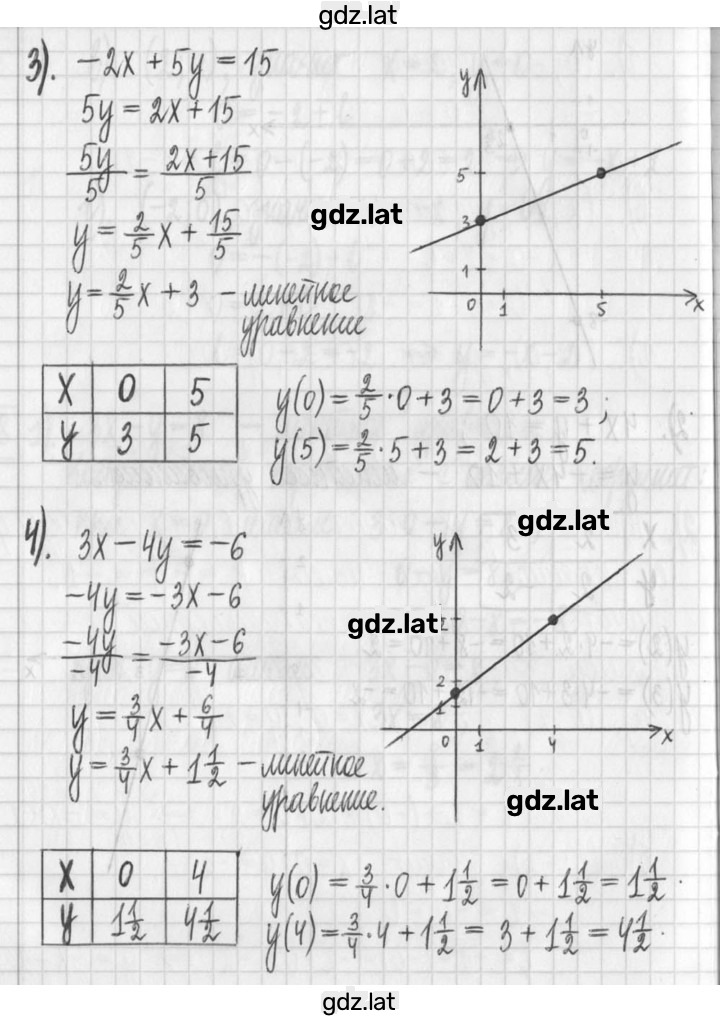 gdz.lat
3). -2x + 5y = 15
5y = 2x + 15
5y/5 = 2x+15/5
gdz.lat
y = 2/5 x + 15/5
y = 2/5 x + 3 - линейное
уравнение
y
5
3
1
0 1 5 x
x 0 5
y 3 5
y(0) = 2/5 · 0 + 3 = 0 + 3 = 3 ;
y(5) = 2/5 · 5 + 3 = 2 + 3 = 5.
gdz.lat
4). 3x - 4y = -6
-4y = -3x - 6
gdz.lat
-4y/-4 = -3x-6/-4
y = 3/4 x + 6/4
y = 3/4 x + 1 1/2 - линейное
уравнение.
y
2
1
0 1 4 x
gdz.lat
x 0 4
y 1 1/2 4 1/2
y(0) = 3/4 · 0 + 1 1/2 = 0 + 1 1/2 = 1 1/2 .
y(4) = 3/4 · 4 + 1 1/2 = 3 + 1 1/2 = 4 1/2 .
gdz.lat